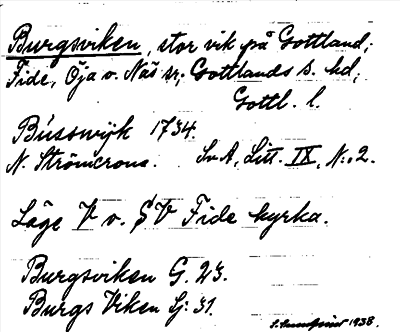 Burgsviken, stor vik på Gottland;
Fide, Öja o. Näs sr; Gottlands s. hd;
Gottl. l.
Bússwijk 1734.
N. Strömcrona. SvA, Litt. IX, N:o 2.
Läge V o. SV Fide kyrka.
Burgsviken G. 23.
Burgs Viken Lj: 31.
1938.